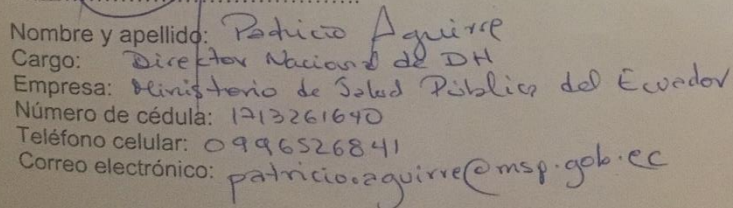 Nombre y apellido: Patricio Aguirre
Cargo: Director Nacional de DH
Empresa: Ministerio de Salud Pública del Ecuador
Número de cédula: 1713261640
Teléfono celular: 0996526841
Correo electrónico: patricio.aguirre@msp.gob.ec